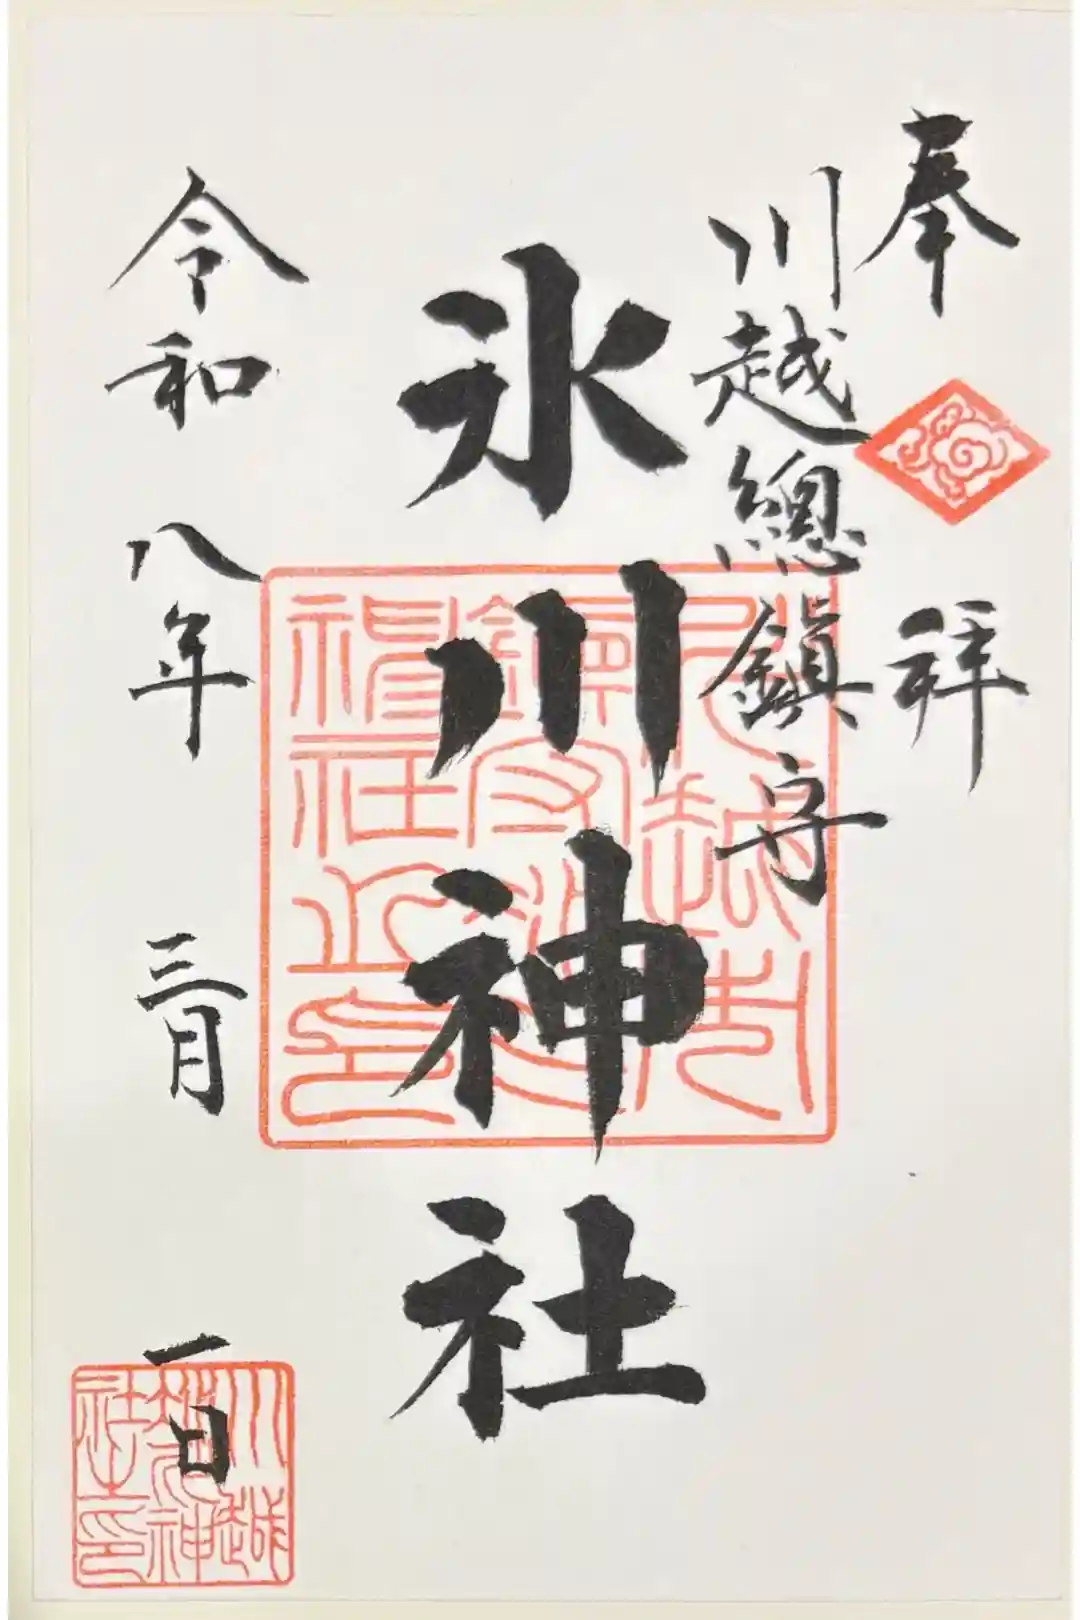 奉拝
川越總鎮守
氷川神社
令和八年三月一日